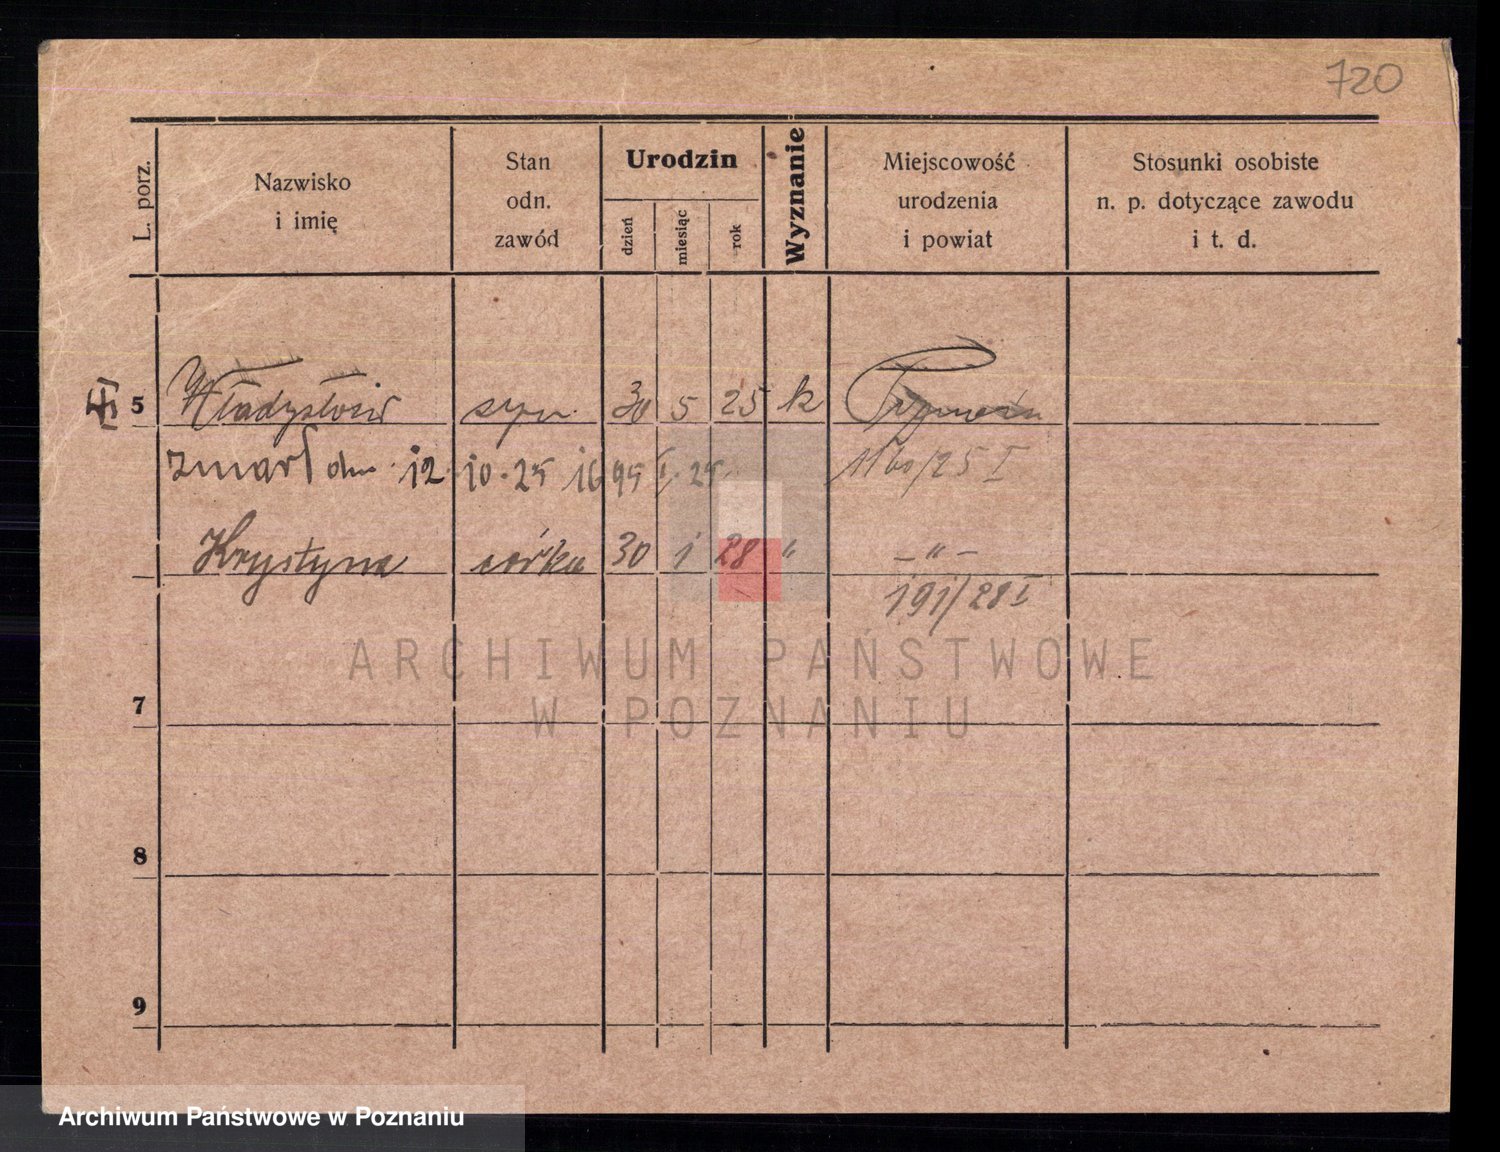 720
L. porz.
Nazwisko
i imię
Stan
odn.
zawód
Urodzin
dzień
miesiąc
rok
Wyznanie
Miejscowość
urodzenia
i powiat
Stosunki osobiste
n. p. dotyczące zawodu
i t. d.
5 Władysław syn 30 5 25 k
zmarł dn. 12.10.25 1695 I. 25 1160/25 I
Krystyna córka 30 1 28 " - " -
191/28 I
ARCHIWUM PAŃSTWOWE
W POZNANIU
7
8
9
Archiwum Państwowe w Poznaniu